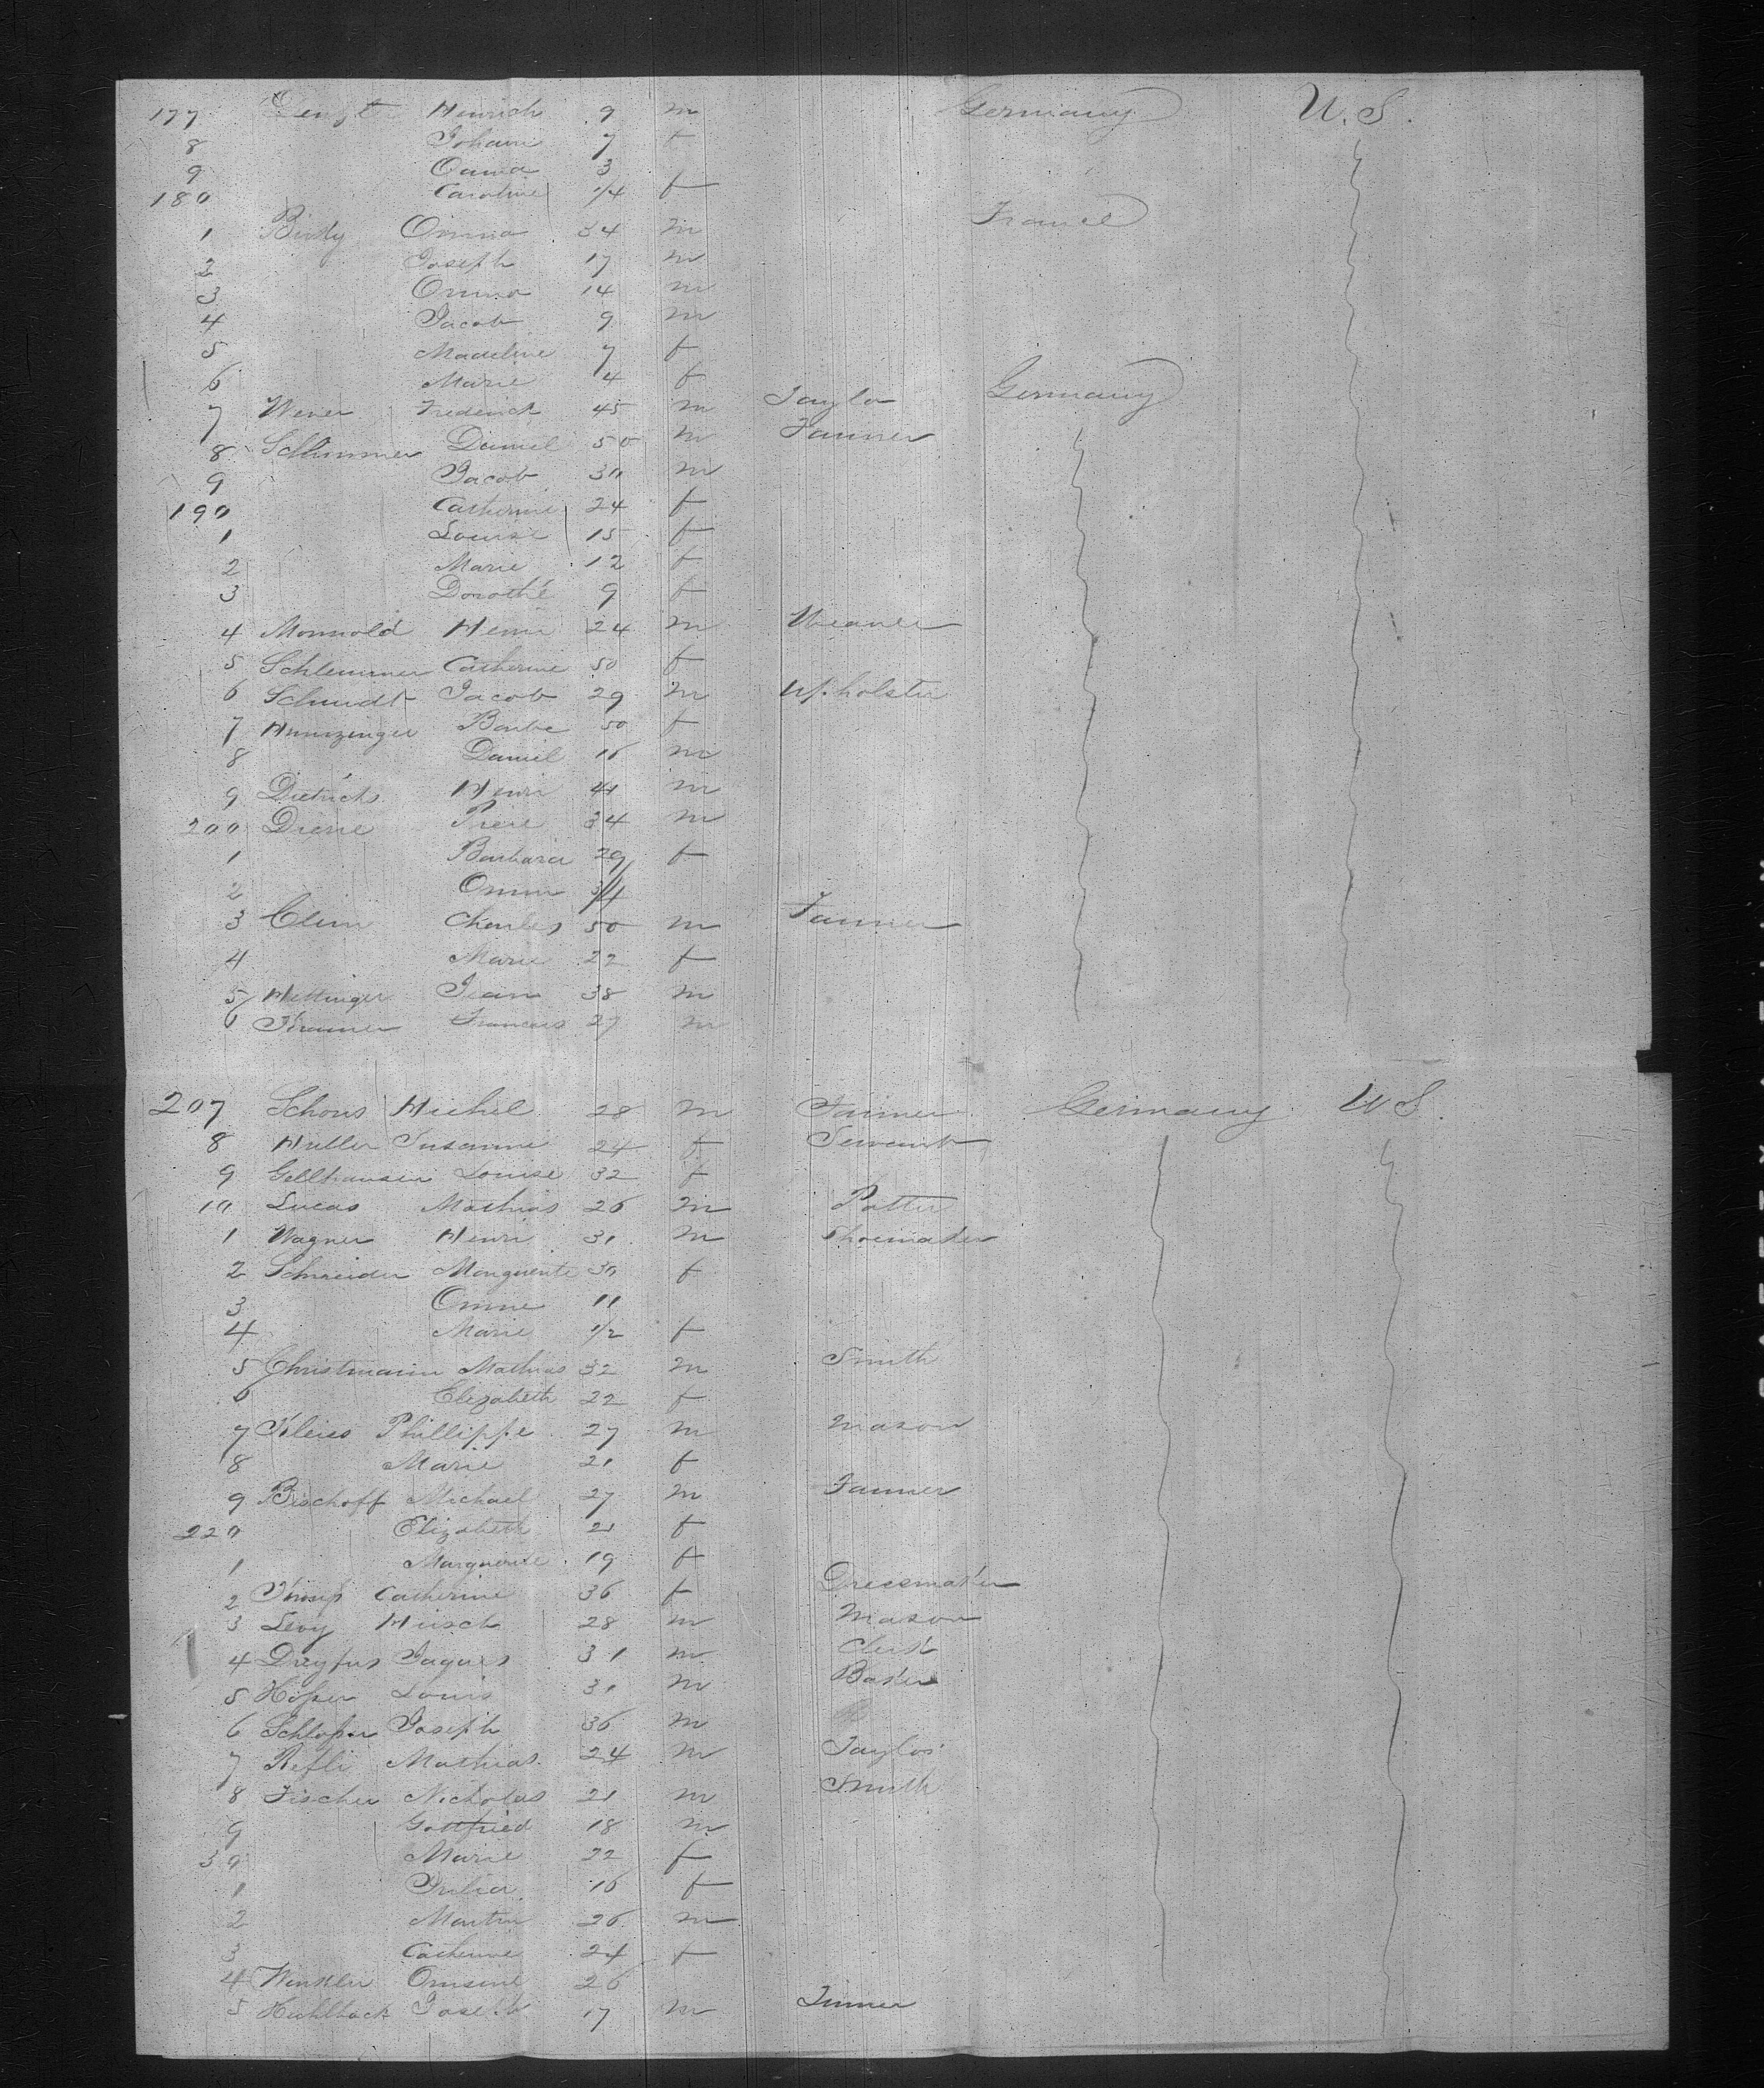 177 Henrich 9 m Germany U.S.
8 Johann 7 f
9 3
180 Caroline 1/4 f
France
1 Birdy 34 m
2 Joseph 17 m
3 14 m
4 Jacob 9 m
5 Madeline 7 f
6 Marie 4 f
7 Wener Frederick 45 m Taylor Germany
8 Schlimmer Daniel 50 m Farmer
9 Jacob 30 m
190 Catherine 24 f
1 Louise 15 f
2 Marie 12 f
3 Dorothé 9 f
4 Monnold Henri 24 m Weaver
5 Schlemmer Catherine 50 f
6 Schmidt Jacob 29 m Upholster
7 Hunzinger Barbe 50 f
8 Daniel 16 m
9 Dietrich Henri 41 m
200 Diene 34 m
1 Barbara 29 f
2 3/4
3 Clem Charles 50 m Farmer
4 Marie 22 f
5 Hettinger Jean 38 m
6 Kramer Francois 27 m
207 Schons Michel 28 m Farmer Germany U.S.
8 Muller Susanne 24 f Servant
9 Gellhausen Louise 32 f
10 Lucas Mathias 26 m Potter
1 Wagner Henri 31 m Shoemaker
2 Schneider Marguerite 30 f
3 11
4 Marie 1/2 f
5 Christmann Mathias 32 m Smith
6 Elizabeth 22 f
7 Kleiss Phillippe 27 m Mason
8 Marie 21 f
9 Bischoff Michael 27 m Farmer
220 Elizabeth 21 f
1 Marguerite 19 f
2 Catherine 36 f Dressmaker
3 Levy Hirsch 28 m Mason
4 Dreyfus Jaques 31 m Clerk
5 Louis 31 m Baker
6 Joseph 36 m
7 Refli Mathias 24 m Taylor
8 Fischer Nicholas 21 m Smith
9 Gottfried 18 m
30 Marie 22 f
1 Julia 16 f
2 Martin 26 m
3 Catherine 24 f
4 Winkler 26
5 Joseph 17 m